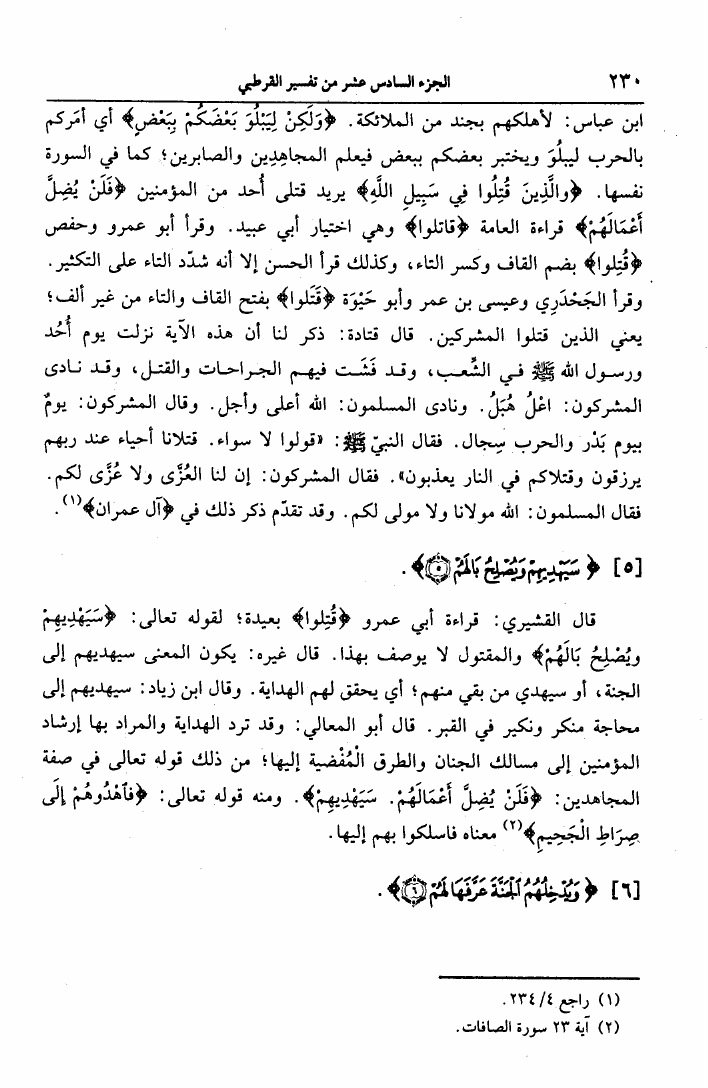 ٢٣٠ الجزء السادس عشر من تفسير القرطبي
ابن عباس: لأهلكهم بجند من الملائكة. ﴿وَلَكِنْ لِيَبْلُوَ بَعْضَكُمْ بِبَعْضٍ﴾ أي أمَركم
بالحرب ليبلُوَ ويختبر بعضكم ببعض فيعلم المجاهِدين والصابرين؛ كما في السورة
نفسها. ﴿والَّذِينَ قُتِلُوا فِي سَبِيلِ اللَّهِ﴾ يريد قتلى أُحد من المؤمنين ﴿فَلَنْ يُضِلَّ
أَعْمَالَهُمْ﴾ قراءة العامة ﴿قاتلوا﴾ وهي اختيار أبي عبيد. وقرأ أبو عمرو وحفص
﴿قُتِلوا﴾ بضم القاف وكسر التاء، وكذلك قرأ الحسن إلا أنه شدّد التاء على التكثير.
وقرأ الجَحْدَرِي وعيسى بن عمر وأبو حَيْوَة ﴿قَتَلوا﴾ بفتح القاف والتاء من غير ألف؛
يعني الذين قتلوا المشركين. قال قتادة: ذكر لنا أن هذه الآية نزلت يوم أُحُد
ورسول الله ﷺ في الشِّعب، وقد فَشَت فيهم الجراحات والقتل، وقد نادى
المشركون: اعْلُ هُبَلُ. ونادى المسلمون: الله أعلى وأجل. وقال المشركون: يومٌ
بيوم بَدْر والحرب سِجال. فقال النبيّ ﷺ: «قولوا لا سواء. قتلانا أحياء عند ربهم
يرزقون وقتلاكم في النار يعذبون». فقال المشركون: إن لنا العُزَّى ولا عُزَّى لكم.
فقال المسلمون: الله مولانا ولا مولى لكم. وقد تقدّم ذكر ذلك في ﴿آل عمران﴾(١).
[٥] ﴿ سَيَهْدِيهِمْ وَيُصْلِحُ بَالَهُمْ ۝٥﴾.
قال القشيري: قراءة أبي عمرو ﴿قُتِلوا﴾ بعيدة؛ لقوله تعالى: ﴿سَيَهْدِيهِمْ
ويُصْلِحُ بَالَهُمْ﴾ والمقتول لا يوصف بهذا. قال غيره: يكون المعنى سيهديهم إلى
الجنة، أو سيهدي من بقي منهم؛ أي يحقق لهم الهداية. وقال ابن زياد: سيهديهم إلى
محاجة منكر ونكير في القبر. قال أبو المعالي: وقد ترد الهداية والمراد بها إرشاد
المؤمنين إلى مسالك الجنان والطرق الْمُفْضية إليها؛ من ذلك قوله تعالى في صفة
المجاهدين: ﴿فَلَنْ يُضِلَّ أَعْمَالَهُمْ. سَيَهْدِيهِمْ﴾. ومنه قوله تعالى: ﴿فَاهْدُوهُمْ إِلَى
صِرَاطِ الْجَحِيمِ﴾(٢) معناه فاسلكوا بهم إليها.
[٦] ﴿ وَيُدْخِلُهُمُ ٱلْجَنَّةَ عَرَّفَهَا لَهُمْ ۝٦﴾.
(١) راجع ٤/ ٢٣٤.
(٢) آية ٢٣ سورة الصافات.